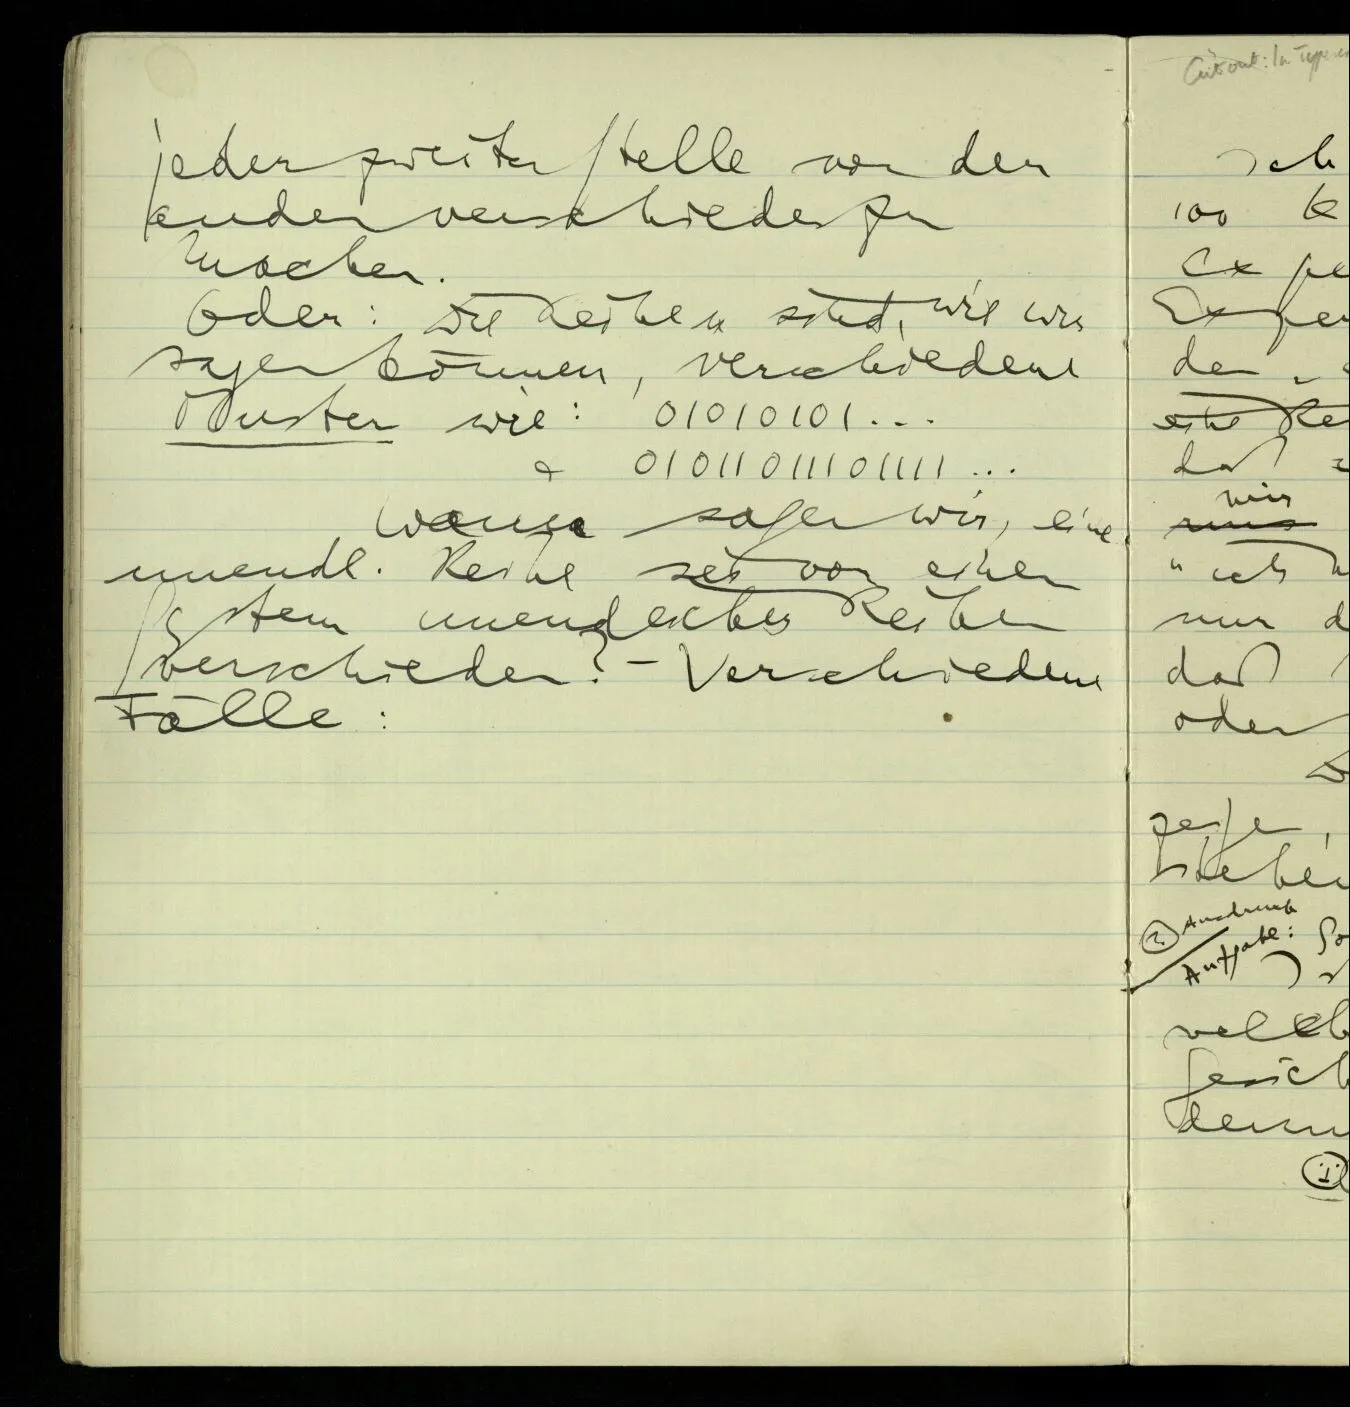 jeder zweiten Stelle von der
andern verschieden zu
machen.
Oder: Die Reihen sind, wie wir
sagen können, verschiedene
Muster wie: 01010101...
& 01011011101111...
Wann sagen wir, eine
unendl. Reihe sei von einem
System unendlicher Reihen
verschieden? – Verschiedene
Fälle:
Cut out: In Type
Ich
100
Ex
den
eine Re
daß
mir
uns
"ich
nur d
daß
oder
zeigen,
Ausdruck
Aufgabe: So
welch
Gesich
denn